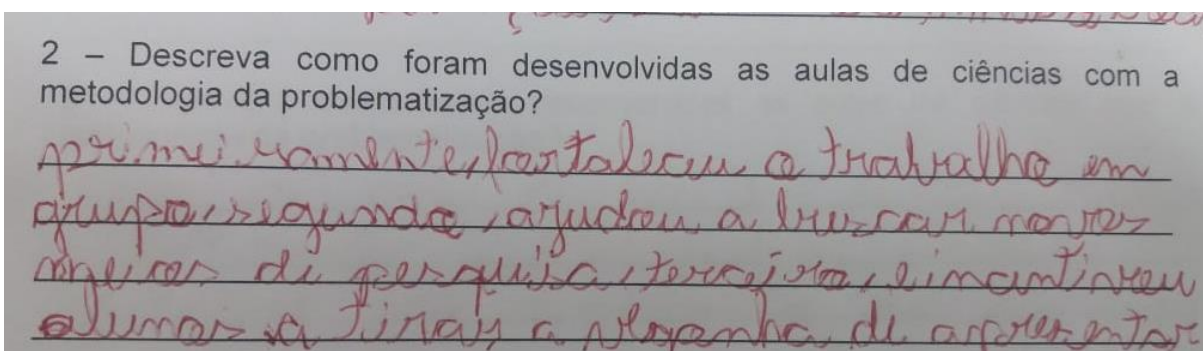 2 – Descreva como foram desenvolvidas as aulas de ciências com a
metodologia da problematização?
primeiramente, fortaleceu o trabalho em
grupo, segundo, ajudou a buscar novas
de pesquisa, terceiro,
alunos a tirar a de apresentar